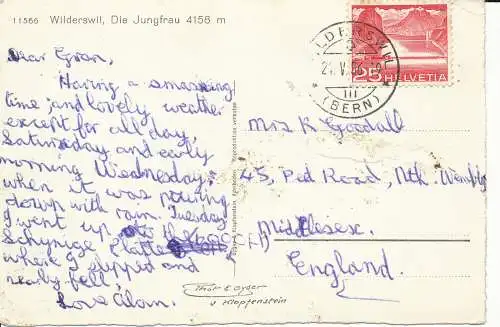 11566 Wilderswil, Die Jungfrau 4158 m
Dear Gran,
Having a smashing
time; and lovely weather
except for all day,
Saturday and early
morning Wednesday,
when it was pouring
down with rain. Tuesday
I went up to the
Schynige Platte
where I slipped and
nearly fell.
Love Alan.
Mrs K Goodall
45, Ped Road, Nth. Wembley
Middlesex.
England.
25 HELVETIA
WILDERSWIL
(BERN)
Thor E Gyger
v Klopfenstein